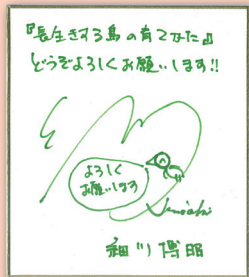 『長生きする鳥の育てかた』
どうぞよろしくお願いします!!
よろしく
お願いします
細川博昭